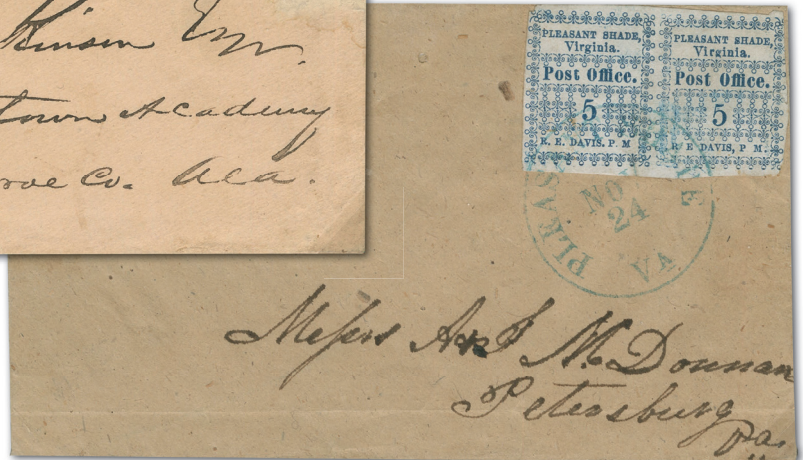 Kinson Esqr.
town Academy
roe Co. Ala.
PLEASANT SHADE,
Virginia.
Post Office.
5
R. E. DAVIS, P. M
PLEASANT SHADE,
Virginia.
Post Office.
5
R. E. DAVIS, P M.
PLEAS
DE
VA
NOV
24
Messrs A & J McDonnan
Petersburg
Va.